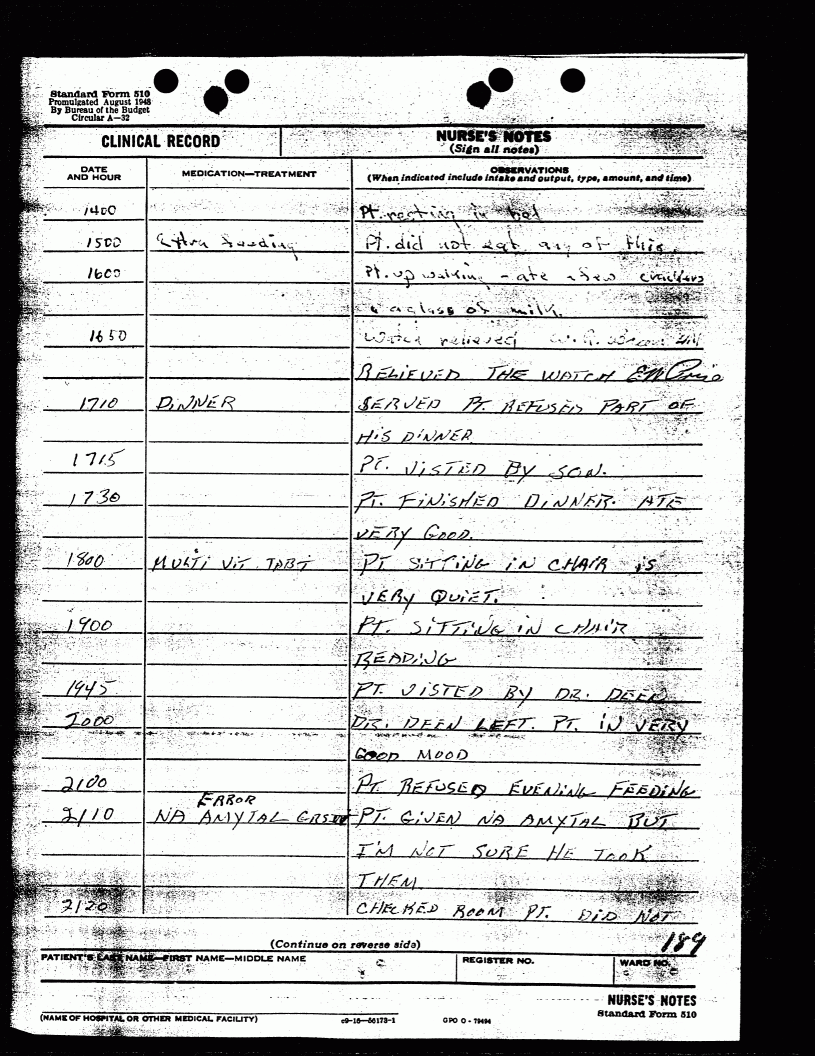 Standard Form 510
Promulgated August 1948
By Bureau of the Budget
Circular A—32
CLINICAL RECORD
NURSE'S NOTES
(Sign all notes)
DATE
AND HOUR
MEDICATION—TREATMENT
OBSERVATIONS
(When indicated include intake and output, type, amount, and time)
1400 Pt. resting in bed
1500 Extra feeding Pt. did not eat any of this.
1600 Pt. up walking - ate a few crackers
a glass of milk.
1650 Watch relieved
RELIEVED THE WATCH
1710 DINNER SERVED PT. REFUSED PART OF
HIS DINNER
1715 PT. VISTED BY SON.
1730 PT. FINISHED DINNER. ATE
VERY GOOD.
1800 MULTI VIT. TABT PT. SITTING IN CHAIR IS
VERY QUIET.
1900 PT. SITTING IN CHAIR
READING
1945 PT. VISTED BY DR. DEEN
2000 DR. DEEN LEFT. PT. IN VERY
GOOD MOOD
2100 PT. REFUSED EVENING FEEDING
ERROR
2110 NA AMYTAL PT. GIVEN NA AMYTAL BUT
I'M NOT SURE HE TOOK
THEM
2120 CHECKED ROOM PT. DID NOT
189
(Continue on reverse side)
PATIENT'S LAST NAME—FIRST NAME—MIDDLE NAME
REGISTER NO.
WARD NO.
NURSE'S NOTES
Standard Form 510
(NAME OF HOSPITAL OR OTHER MEDICAL FACILITY)
c9—16—56173-1
GPO O - 79494